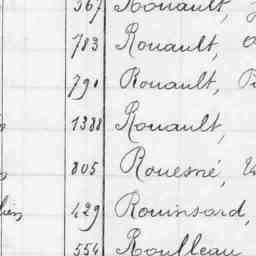 567 Rouault,
783 Rouault,
791 Rouault,
1388 Rouault,
805 Rouesné,
429 Rouinsard,
554 Roulleau